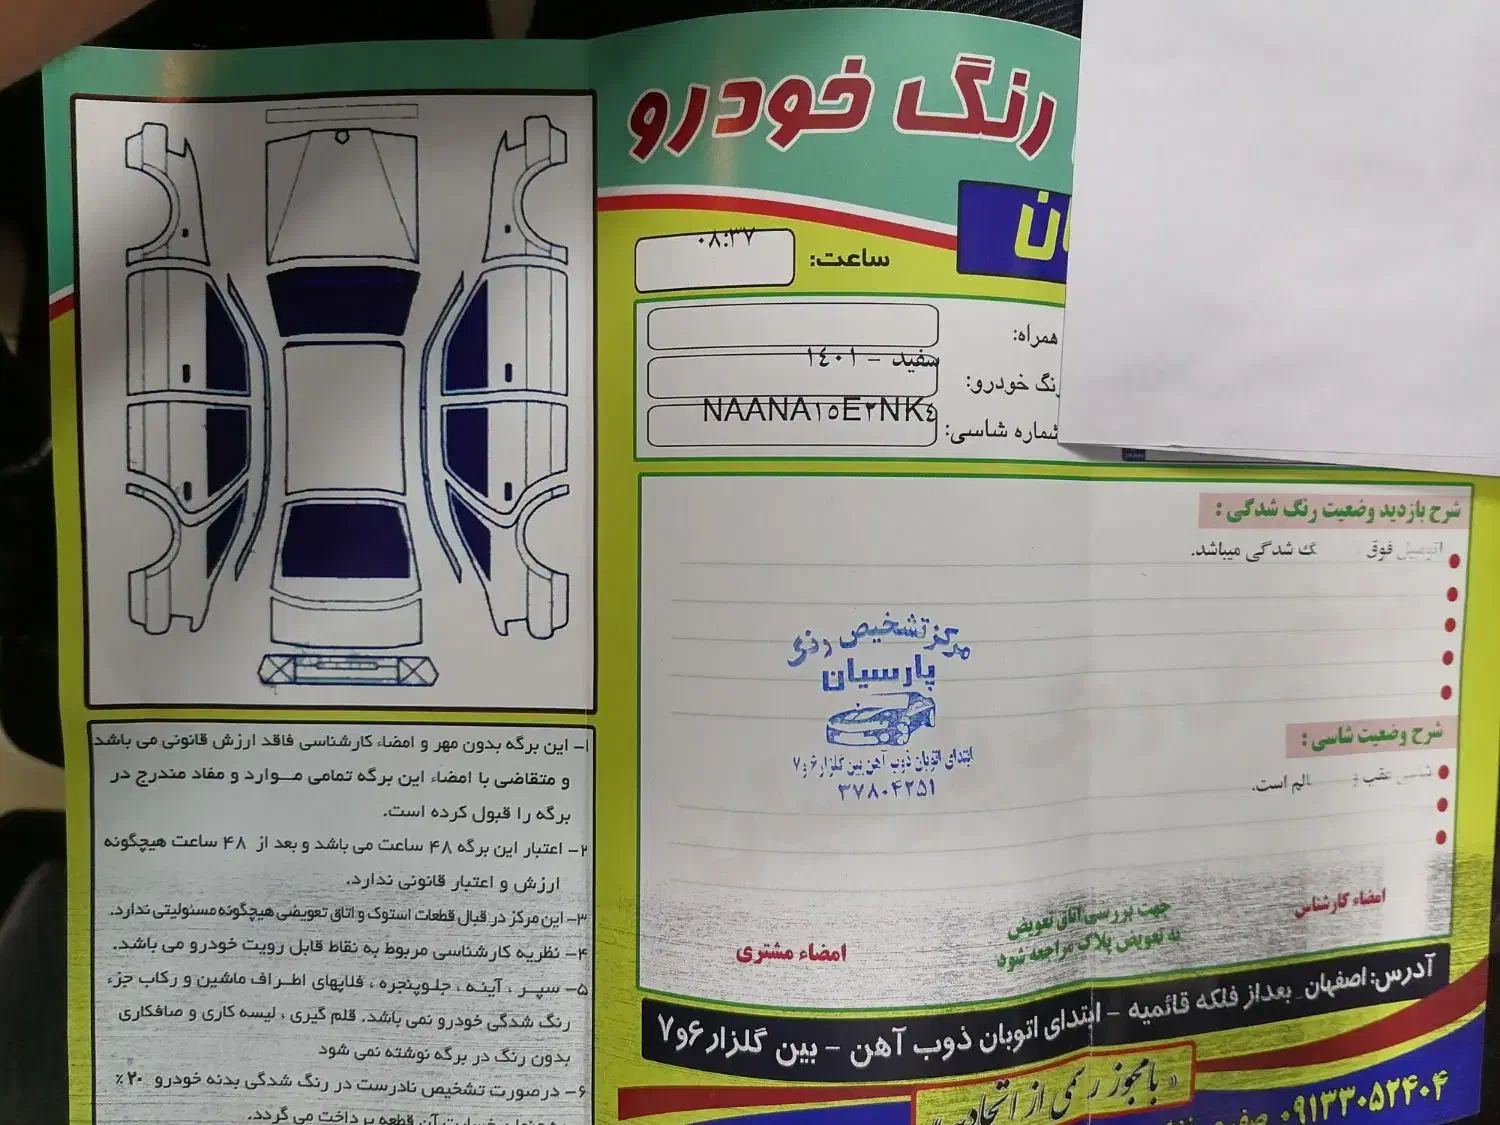 رنگ خودرو
ان
ساعت:
۰۸:۳۷
همراه:
رنگ خودرو:
سفید - ۱۴۰۱
شماره شاسی:
NAANA۱۵E۲NK۴
شرح بازدید وضعیت رنگ شدگی :
اتومبیل فوق
شدگی میباشد.
شرح وضعیت شاسی :
شاسی عقب و
سالم است.
مرکز تشخیص رنگ
پارسیان
ابتدای اتوبان ذوب آهن بین گلزار ۶ و ۷
۳۷۸۰۴۲۵۱
امضاء کارشناس
جهت بررسی اتاق تعویض
به تعویض پلاک مراجعه شود
امضاء مشتری
آدرس: اصفهان_ بعداز فلکه قائمیه - ابتدای اتوبان ذوب آهن - بین گلزار ۶و۷
«بامجوز رسمی از اتحادیه»
۰۹۱۳۳۰۵۲۴۰۴
۱- این برگه بدون مهر و امضاء کارشناسی فاقد ارزش قانونی می باشد
و متقاضی با امضاء این برگه تمامی موارد و مفاد مندرج در
برگه را قبول کرده است.
۲- اعتبار این برگه ۴۸ ساعت می باشد و بعد از ۴۸ ساعت هیچگونه
ارزش و اعتبار قانونی ندارد.
۳- این مرکز در قبال قطعات استوک و اتاق تعویضی هیچگونه مسئولیتی ندارد.
۴- نظریه کارشناسی مربوط به نقاط قابل رویت خودرو می باشد.
۵- سپر ، آینه ، جلوپنجره ، فلاپهای اطراف ماشین و رکاب جزء
رنگ شدگی خودرو نمی باشد. قلم گیری ، لیسه کاری و صافکاری
بدون رنگ در برگه نوشته نمی شود
۶- درصورت تشخیص نادرست در رنگ شدگی بدنه خودرو ۲۰٪
خسارت آن قطعه پرداخت می گردد.